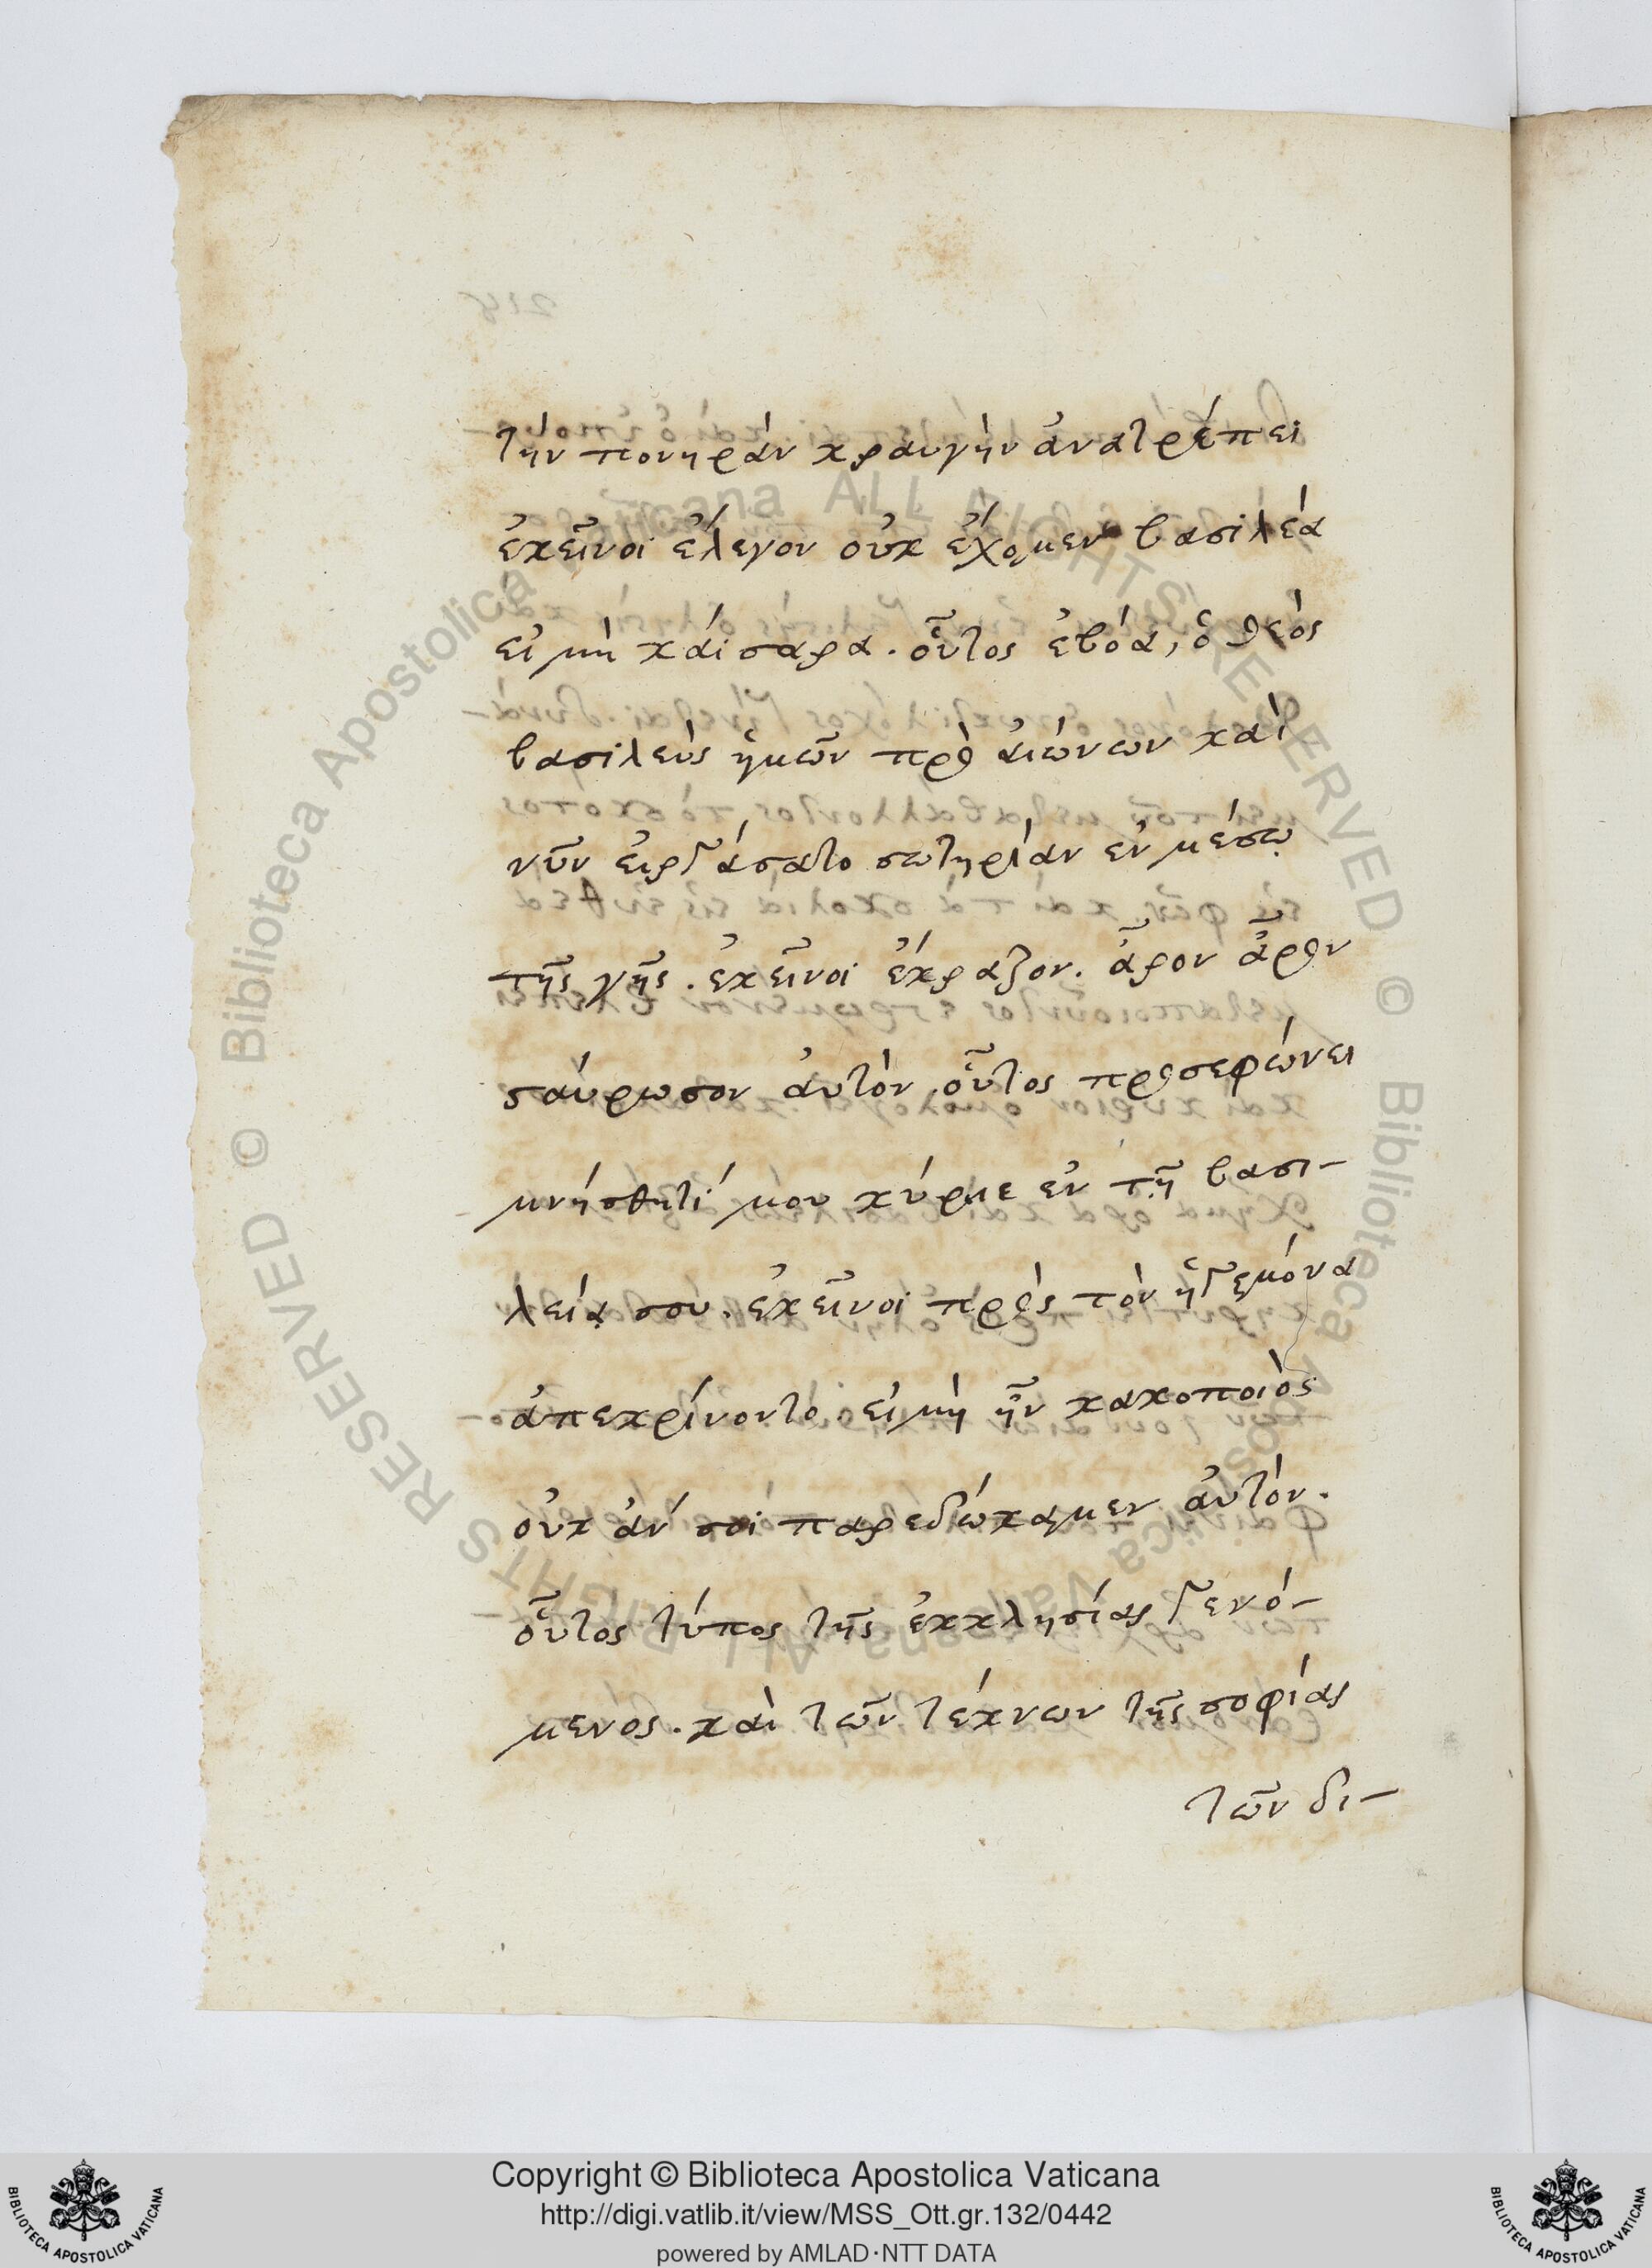 τὴν πονηρὰν κραυγὴν ἀνατρέπει
ἐκεῖνοι ἔλεγον οὐκ ἔχομεν βασιλέα
εἰ μὴ κάισαρα. οὗτος ἐβόα, ὁ θεὸς
βασιλεὺς ἡμῶν πρὸ ἀιώνων καὶ
νῦν εἰργάσατο σωτηρίαν ἐν μέσῳ
τῆς γῆς. ἐκεῖνοι ἔκραζον. ἆρον ἆρον
σταύρωσον ἀυτὸν, οὗτος προσεφώνει
μνήσθητί μου κύριε ἐν τῇ βασι-
λείᾳ σου. ἐκεῖνοι πρὸς τὸν ἡγεμόνα
ἀπεκρίνοντο. εἰ μὴ ἦν κακοποιὸς
οὐκ ἄν σοι παρεδώκαμεν ἀυτὸν.
οὗτος τύπος τῆς ἐκκλησίας γενό-
μενος. καὶ τῶν τέκνων τῆς σοφίας
τῶν δι-
Copyright © Biblioteca Apostolica Vaticana
http://digi.vatlib.it/view/MSS_Ott.gr.132/0442
powered by AMLAD·NTT DATA
BIBLIOTECA APOSTOLICA VATICANA
BIBLIOTECA APOSTOLICA VATICANA